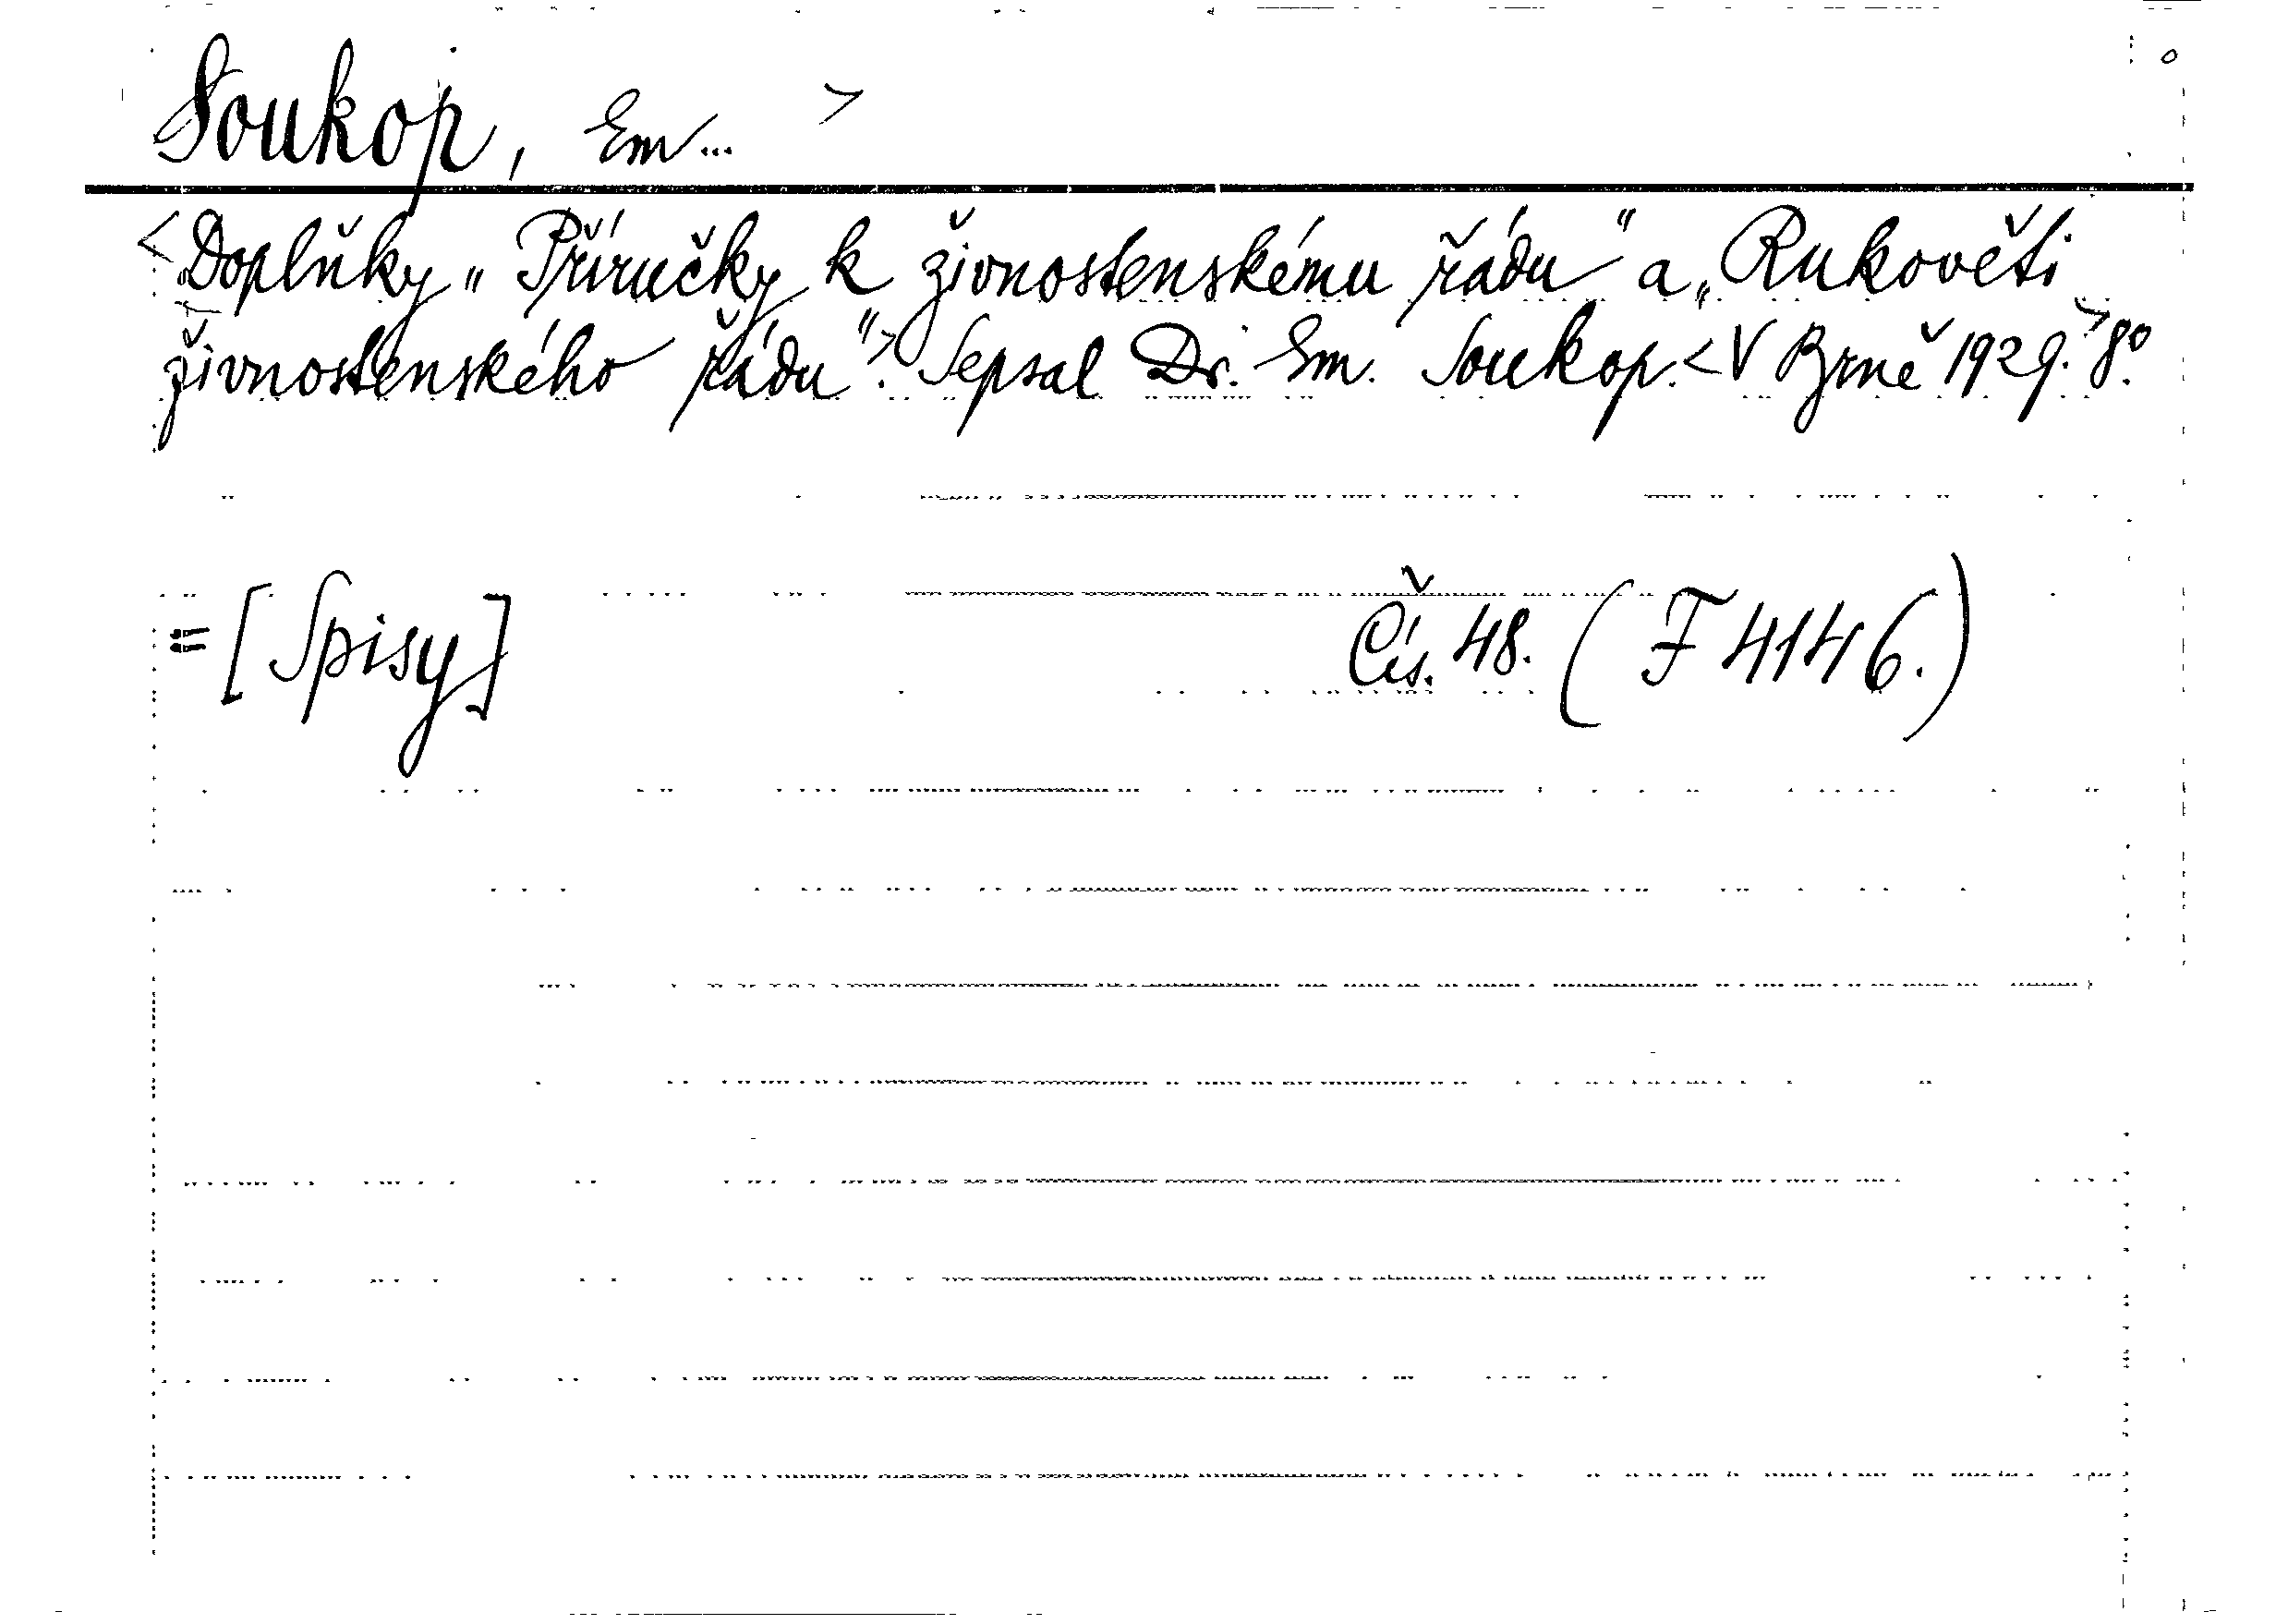 Soukop, Em... >
<Doplňky „Příručky k živnostenskému řádu“ a „Rukověti
živnostenského řádu“.> Sepsal Dr. Em. Soukop. <V Brně 1929.> 8°.
= [Spisy] Čís. 48. (F 4146.)